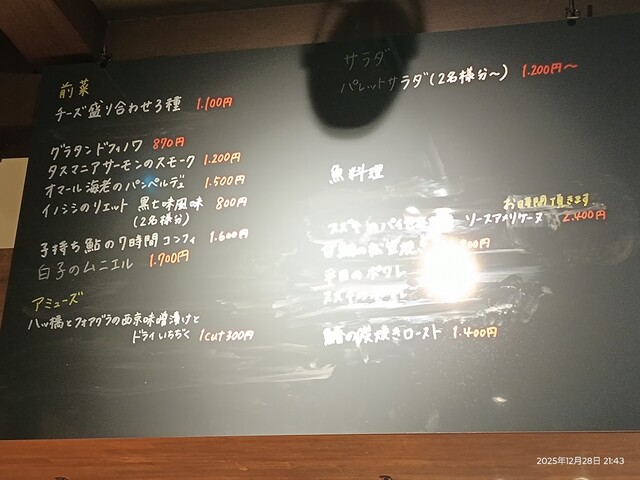 前菜
チーズ盛り合わせ3種 1.100円
グラタンドフィノワ 870円
タスマニアサーモンのスモーク 1.200円
オマール海老のパンペルデュ 1.500円
イノシシのリエット 黒七味風味 800円
(2名様分)
子持ち鮎の7時間コンフィ 1.600円
白子のムニエル 1.700円
アミューズ
八ッ橋とフォアグラの西京味噌漬けと
ドライいちぢく 1cut300円
サラダ
パレットサラダ(2名様分〜) 1.200円〜
魚料理
お時間頂きます
ソースアメリケーヌ 2.400円
炭焼きロースト 1.400円
2025年12月28日 21:43